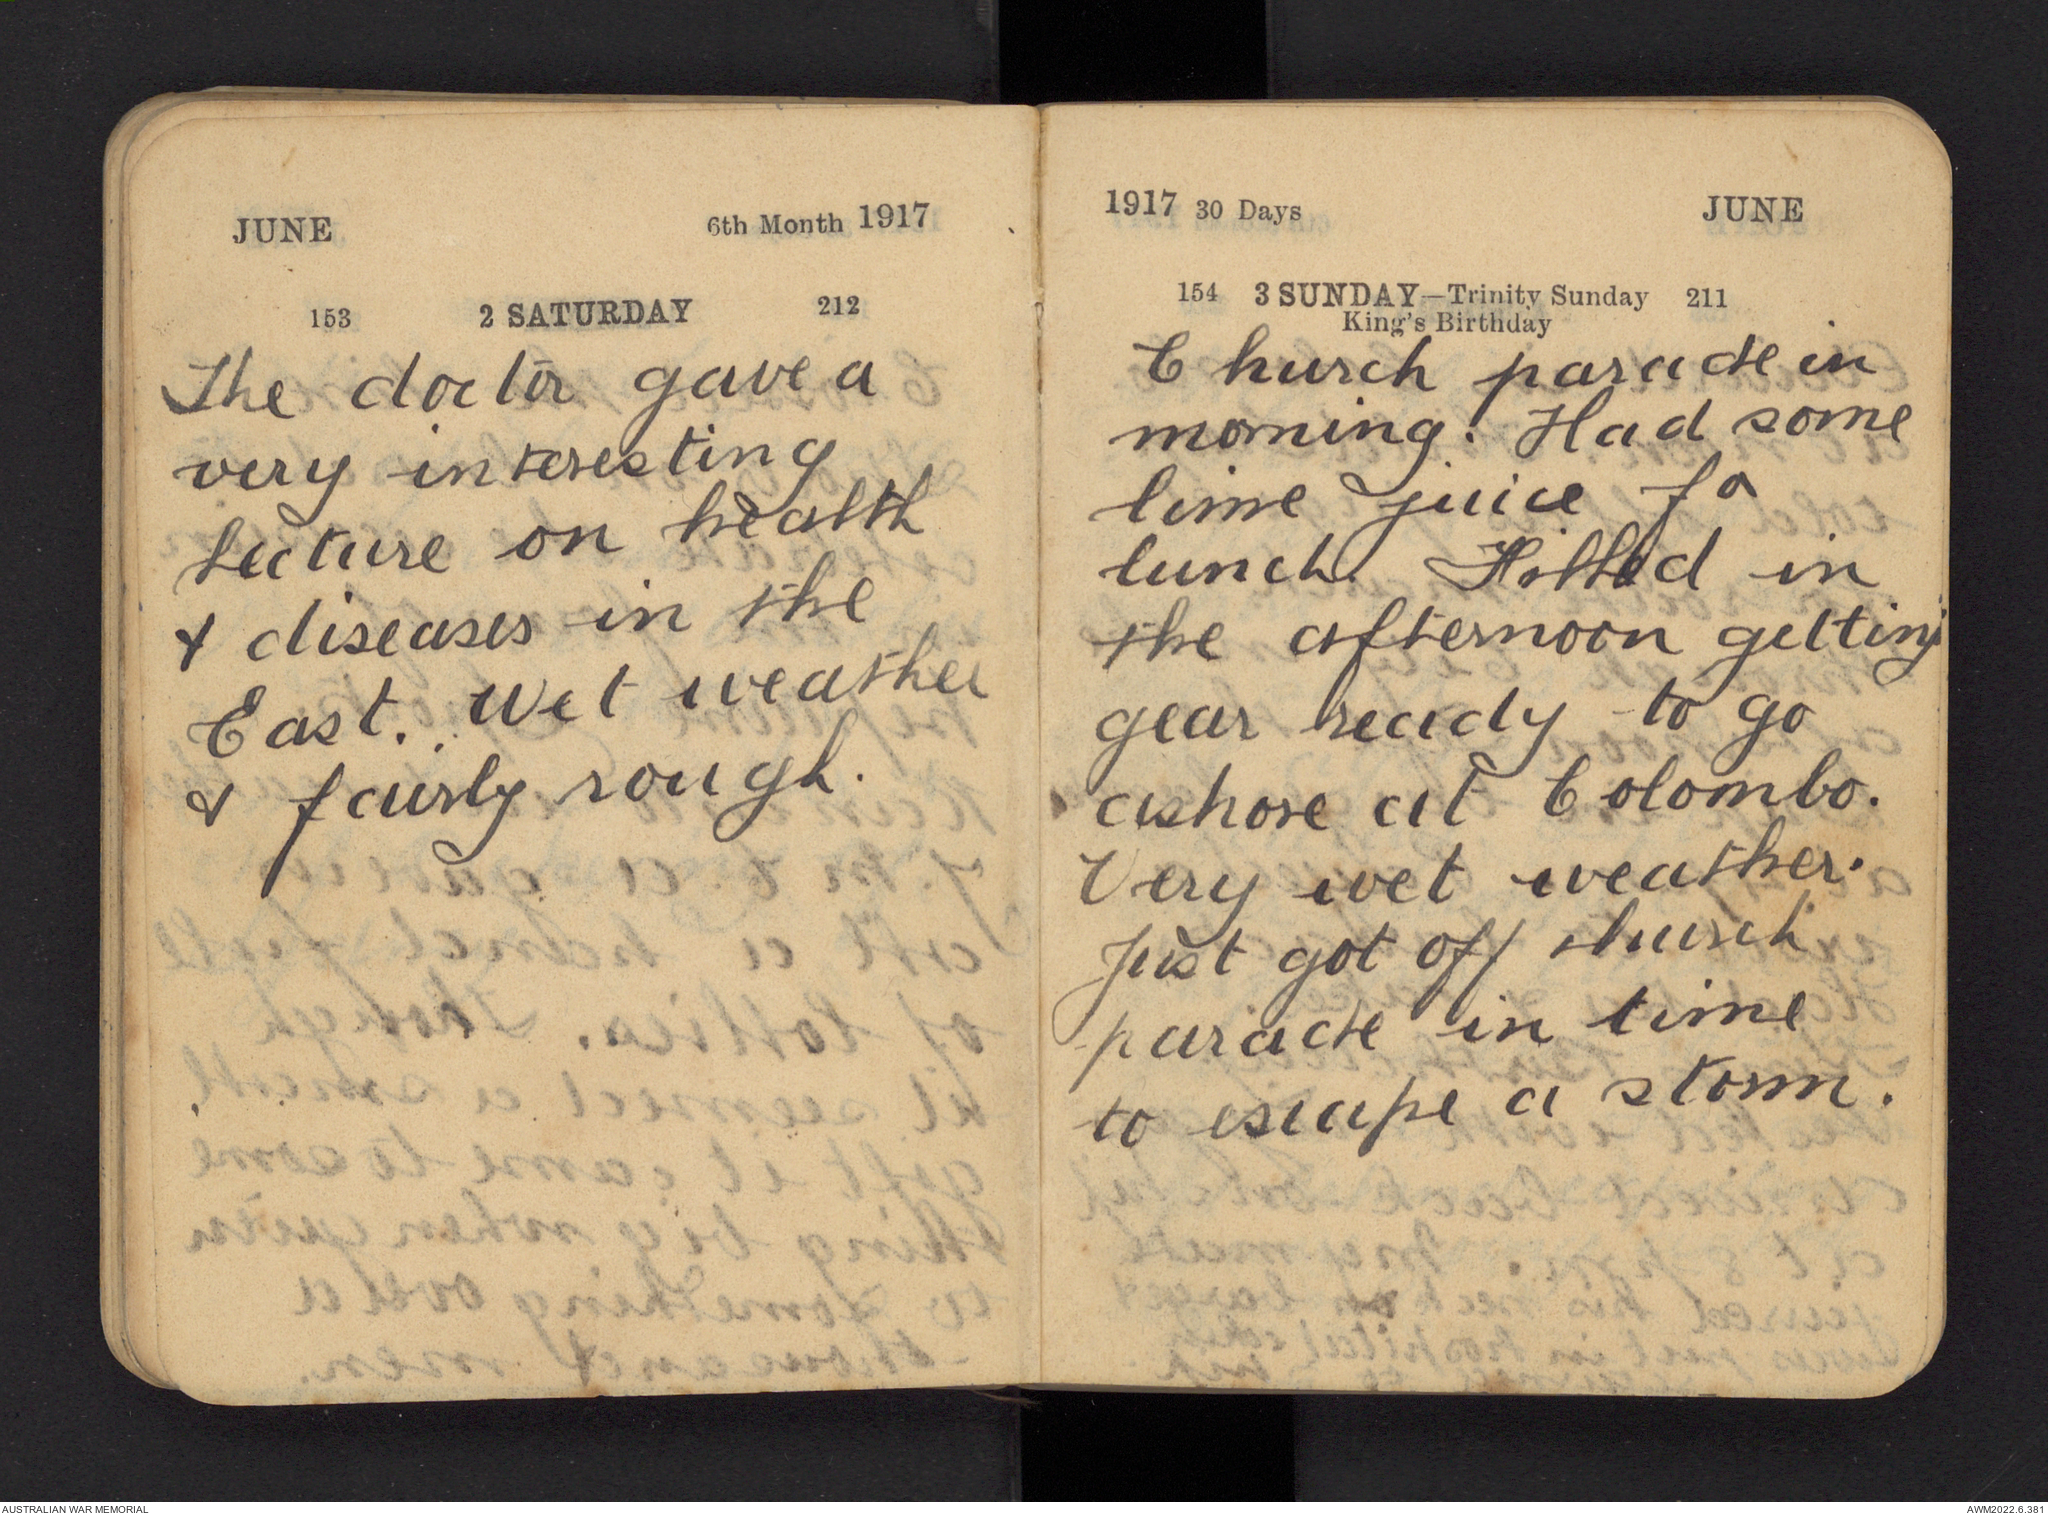 JUNE 6th Month 1917
153 2 SATURDAY 212
The doctor gave a
very interesting
lecture on health
& diseases in the
East. Wet weather
& fairly rough.
1917 30 Days JUNE
154 3 SUNDAY—Trinity Sunday 211
King's Birthday
Church parade in
morning. Had some
lime juice fo
lunch. in
the afternoon getting
gear ready to go
ashore at Colombo.
Very wet weather.
Just got off church
parade in time
to escape a storm.
AUSTRALIAN WAR MEMORIAL
AWM2022.6.381